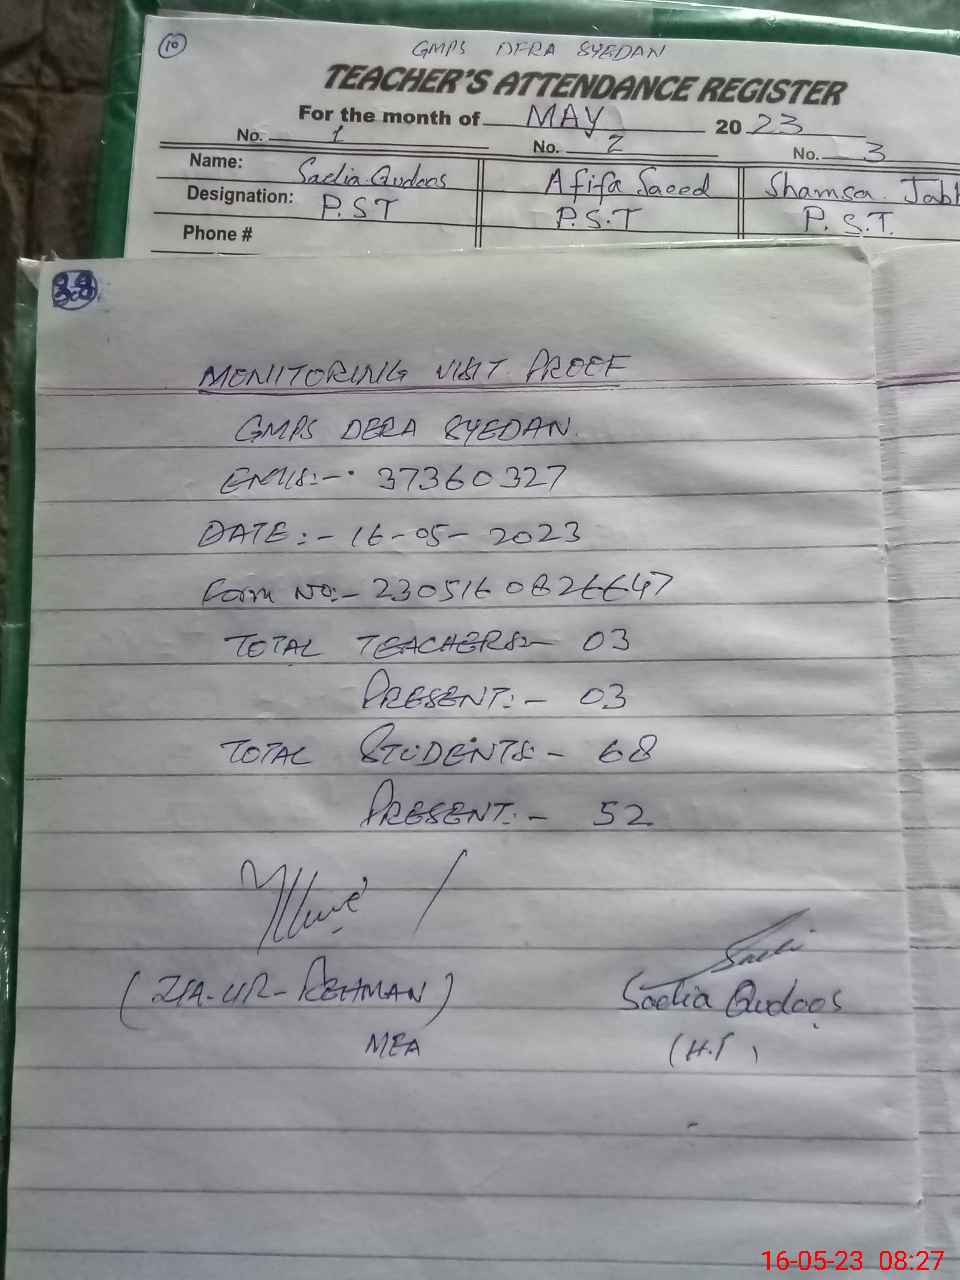 10
GMPS DERA SYEDAN
TEACHER'S ATTENDANCE REGISTER
For the month of MAY 2023
No. 1 No. 2 No. 3
Name: Sadia Qudoos Afifa Saeed Shamsa
Designation: P.S.T P.S.T P.S.T.
Phone #
MONITORING VISIT PROOF
GMPS DERA SYEDAN.
EMIS:- 37360327
DATE:- 16-05-2023
Form No:- 2305160826647
TOTAL TEACHERS:- 03
PRESENT:- 03
TOTAL STUDENTS:- 68
PRESENT:- 52
(ZIA-UR-REHMAN)
Sadia Qudoos
MEA
(H.T)
16-05-23 08:27